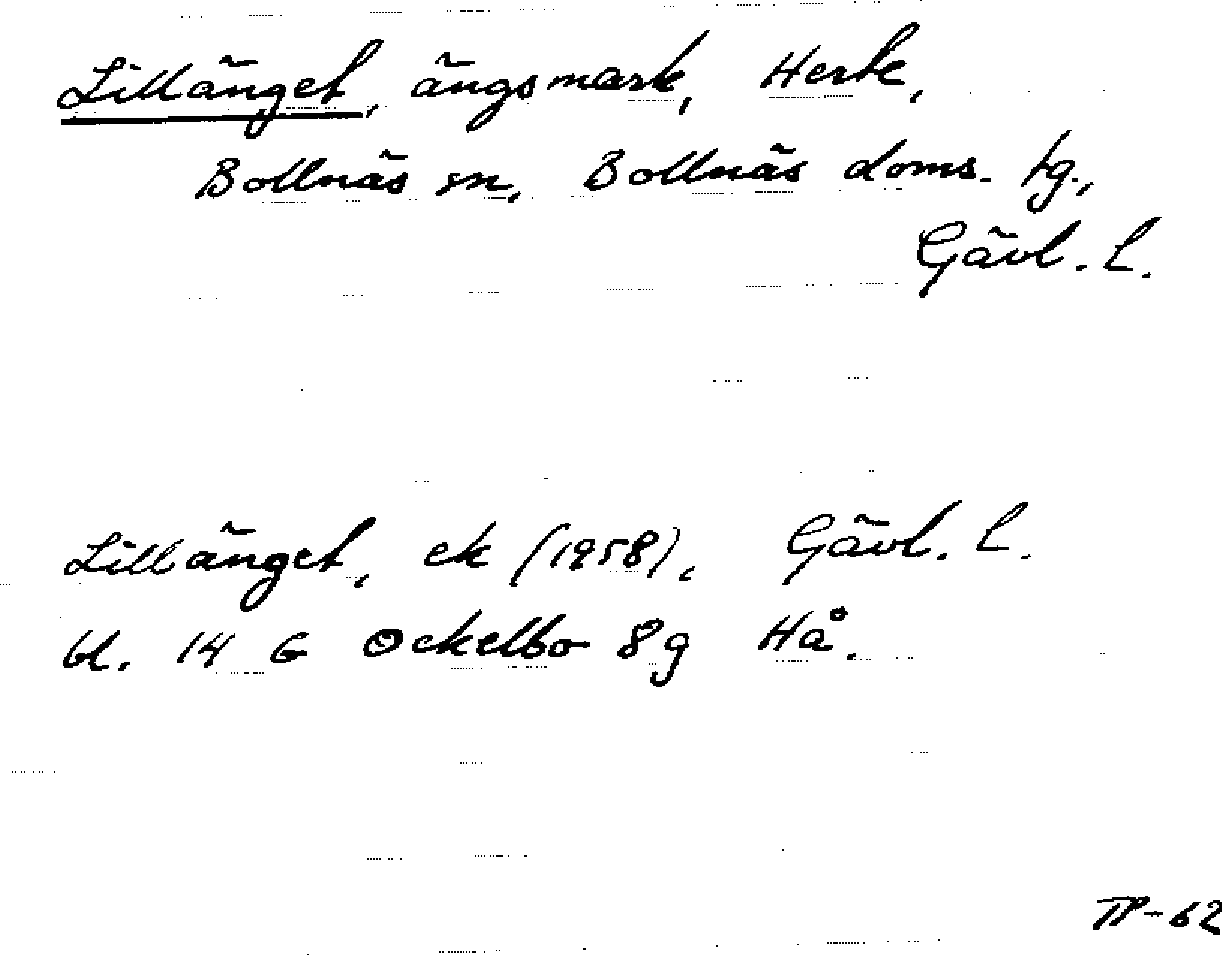 Lillänget, ängsmark, Herte,
Bollnäs sn, Bollnäs doms. tg.,
Gävl. l.
Lillänget, ek (1958), Gävl. l.
bl. 14 G Ockelbo 8g Hå.
TP-62